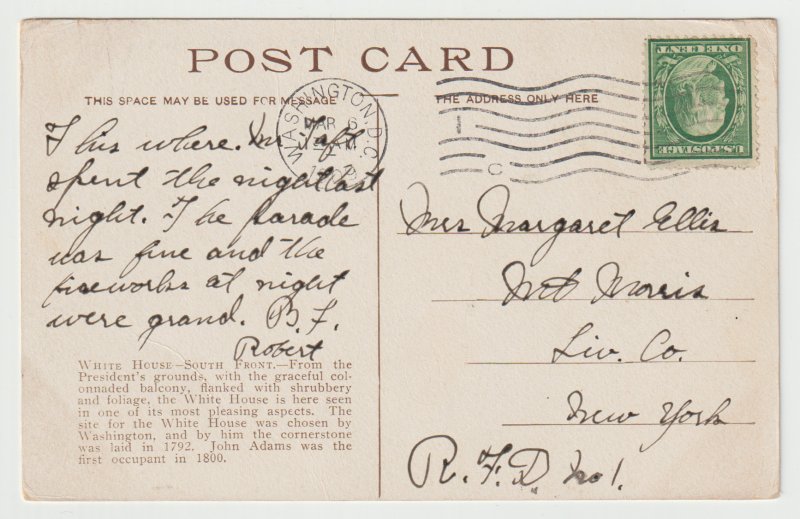 POST CARD
THIS SPACE MAY BE USED FOR MESSAGE
THE ADDRESS ONLY HERE
WASHINGTON, D.C.
MAR 6
AM
1909
1
C
ONE CENT
U.S. POSTAGE
This where. Mr Taft
spent the night last
night. The parade
was fine and the
fireworks at night
were grand. B.F.
Robert
WHITE HOUSE—SOUTH FRONT.—From the
President's grounds, with the graceful col-
onnaded balcony, flanked with shrubbery
and foliage, the White House is here seen
in one of its most pleasing aspects. The
site for the White House was chosen by
Washington, and by him the cornerstone
was laid in 1792. John Adams was the
first occupant in 1800.
Mrs Margaret Ellis
Mt Morris
Liv. Co.
New York
R.F.D No 1.